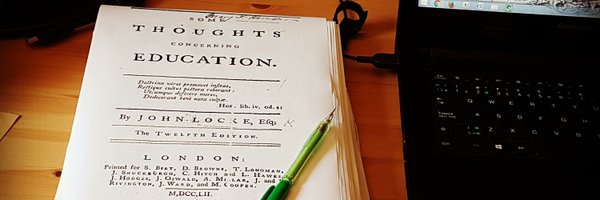 SOME
THOUGHTS
CONCERNING
EDUCATION.
Doctrina vires promovet insitas,
Rectique cultus pectora roborant:
Utcunque defecere mores,
Dedecorant bene nata culpæ.
Hor. lib. iv. od. 4.
By JOHN LOCKE, Esq;
The TWELFTH EDITION.
LONDON:
Printed for S. BIRT, D. BROWNE, T. LONGMAN,
J. SHUCKBURGH, C. HITCH and L. HAWES,
J. HODGES, J. OSWALD, A. MILLAR, J. and J.
RIVINGTON, J. WARD, and M. COOPER.
M,DCC,LII.